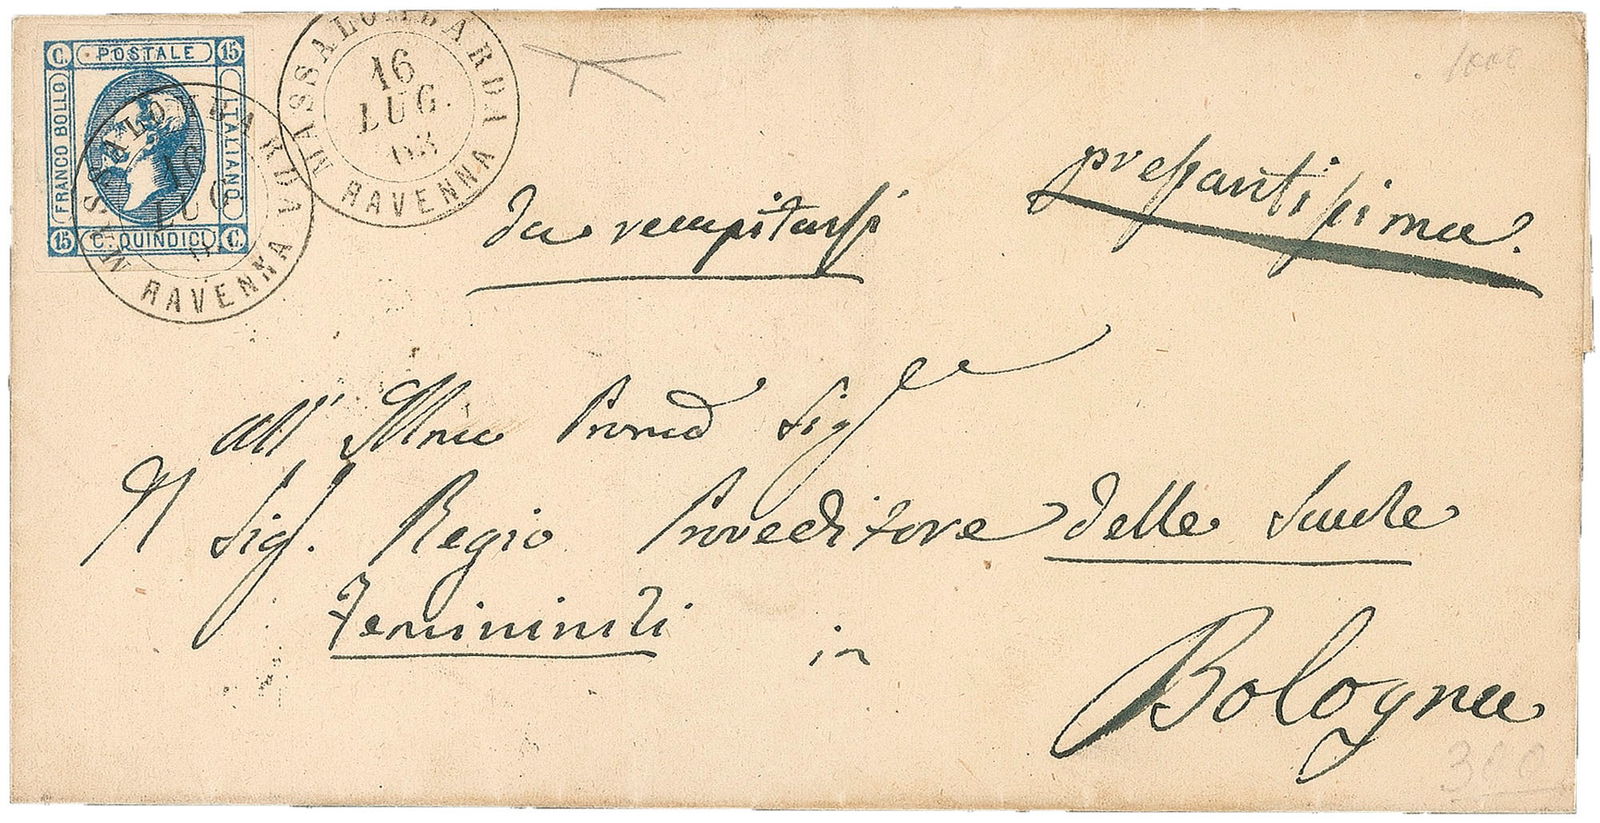 C. POSTALE 15
FRANCO BOLLO
ITALIANO
15 C. QUINDICI C.
MASSALOMBARDA
16
LUG
RAVENNA
MASSALOMBARDA
16
LUG.
63
RAVENNA
da recapitarsi
pressantissima.
1000
all' Illmo Sig
Al Sig. Regio Proveditore delle Scuole
Feminili
in
Bologna
300